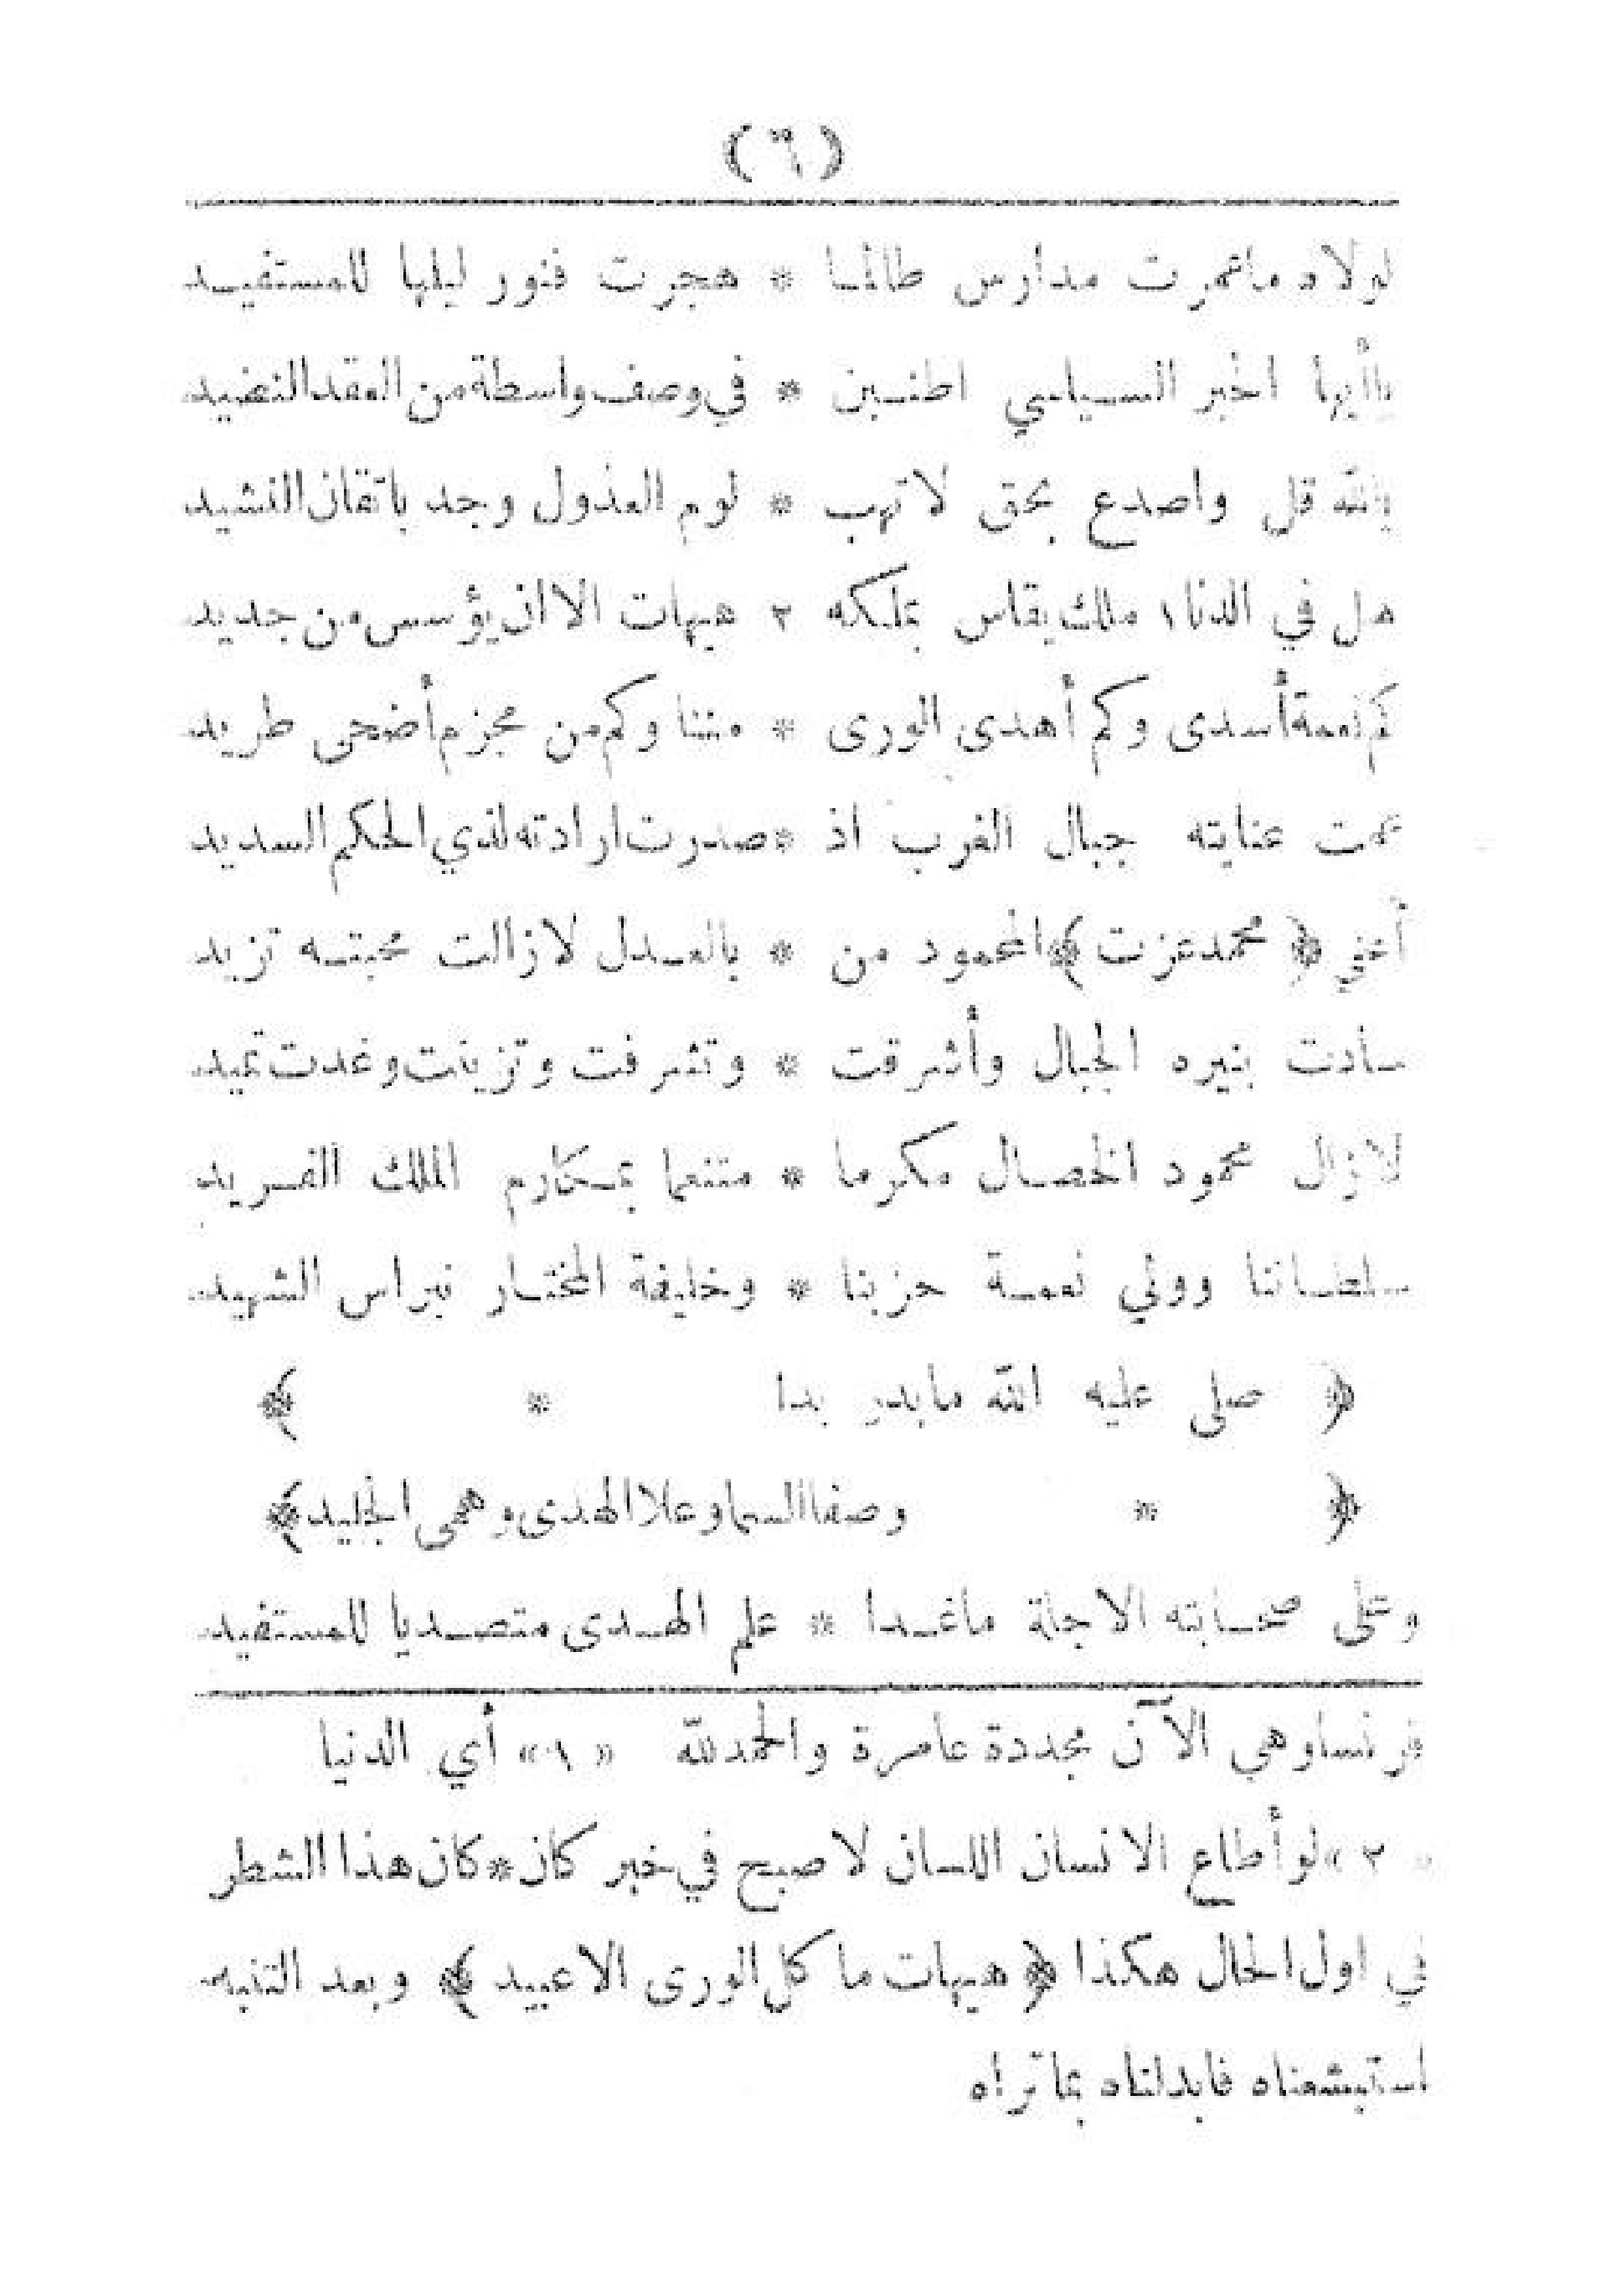 (٦)
لولاه ماعمرت مدارس طالما * هجرت فنور ليلها للمستفيد
ياأيها الخبر السياسي اطنبن * في وصف واسطة من العقد النضيد
بالله قل واصدع بحق لاتهب * لوم العذول وجد باتقان النشيد
هل في الدنا١ ملك يقاس بملكه ٢ هيهات الاان يؤسس من جديد
كم نعمة أسدى وكم أهدى الورى * مننا وكم من مجرم أضحى طريد
عمت عنايته جبال الغرب اذ * صدرت ارادته لذي الحكم السديد
أعني ﴿محمد عزت﴾ المحمود من * بالعدل لازالت محبته تزيد
سادت بنيره الجبال وأشرقت * وتشرفت وتزينت وغدت تميد
لازال محمود الخصال مكرما * متنعما بمكارم الملك الفريد
سلطاننا وولي نعمة حزبنا * وخليفة المختار نبراس الشهيد
﴿ صلى عليه الله مابدر بدا * ﴾
﴿ * وصفاالسما وعلا الهدى وهمى الجليد﴾
وعلى صحابته الاجلة ماغدا * علم الهدى متصديا للمستفيد
فرنسا وهي الآن مجددة عامرة والحمدلله «١» أي الدنيا
«٢» لو أطاع الانسان اللسان لاصبح في خبر كان * كان هذا الشطر
في اول الحال هكذا ﴿هيهات ما كل الورى الاعبيد﴾ وبعد التنبه
استبشعناه فابدلناه بماتراه